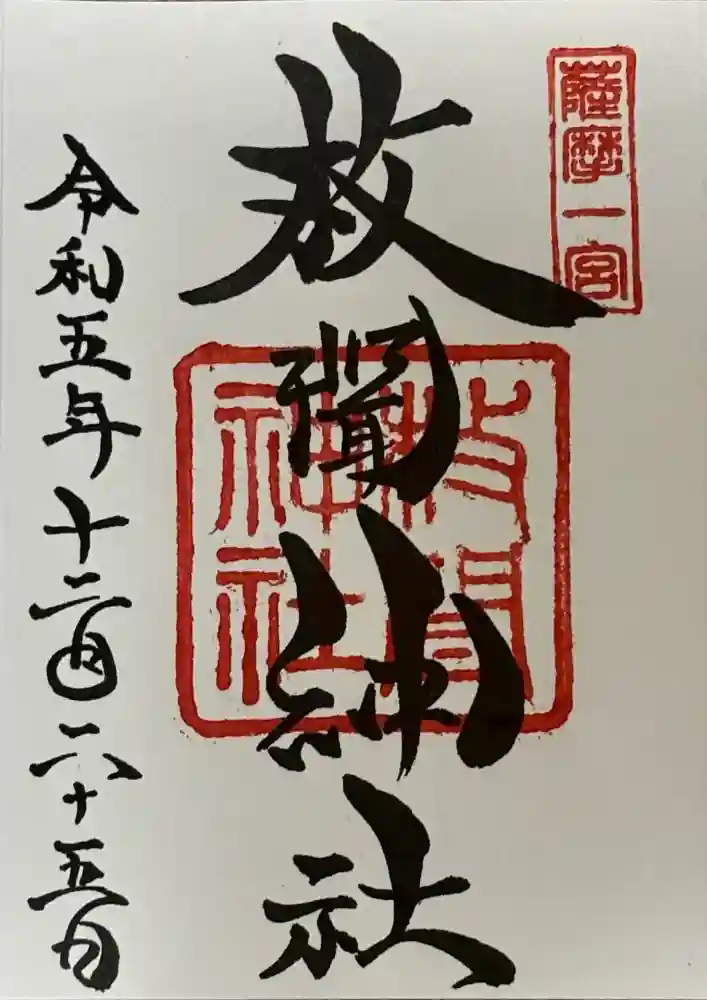 薩摩一宮
枚聞神社
枚聞神社
令和五年十二月二十五日